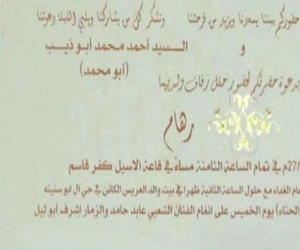 حضوركم بيننا يسعدنا ويزيد من فرحتنا
ونشكر كل من يشاركنا ويلبي الليلة دعوتنا
و
السيد أحمد محمد أبو ذيب
(أبو محمد)
بدعوة حضرتكم لحضور حفل زفاف ولديهما
رهام
27/م في تمام الساعة الثامنة مساءً في قاعة الاسيل كفر قاسم
ام الغداء مع حلول الساعة الثانية ظهرا في بيت والد العريس الكائن في حي ال ابو سنينه
(الحناء) يوم الخميس على انغام الفنان الشعبي عابد حامد والزمار إشرف أبو ليل